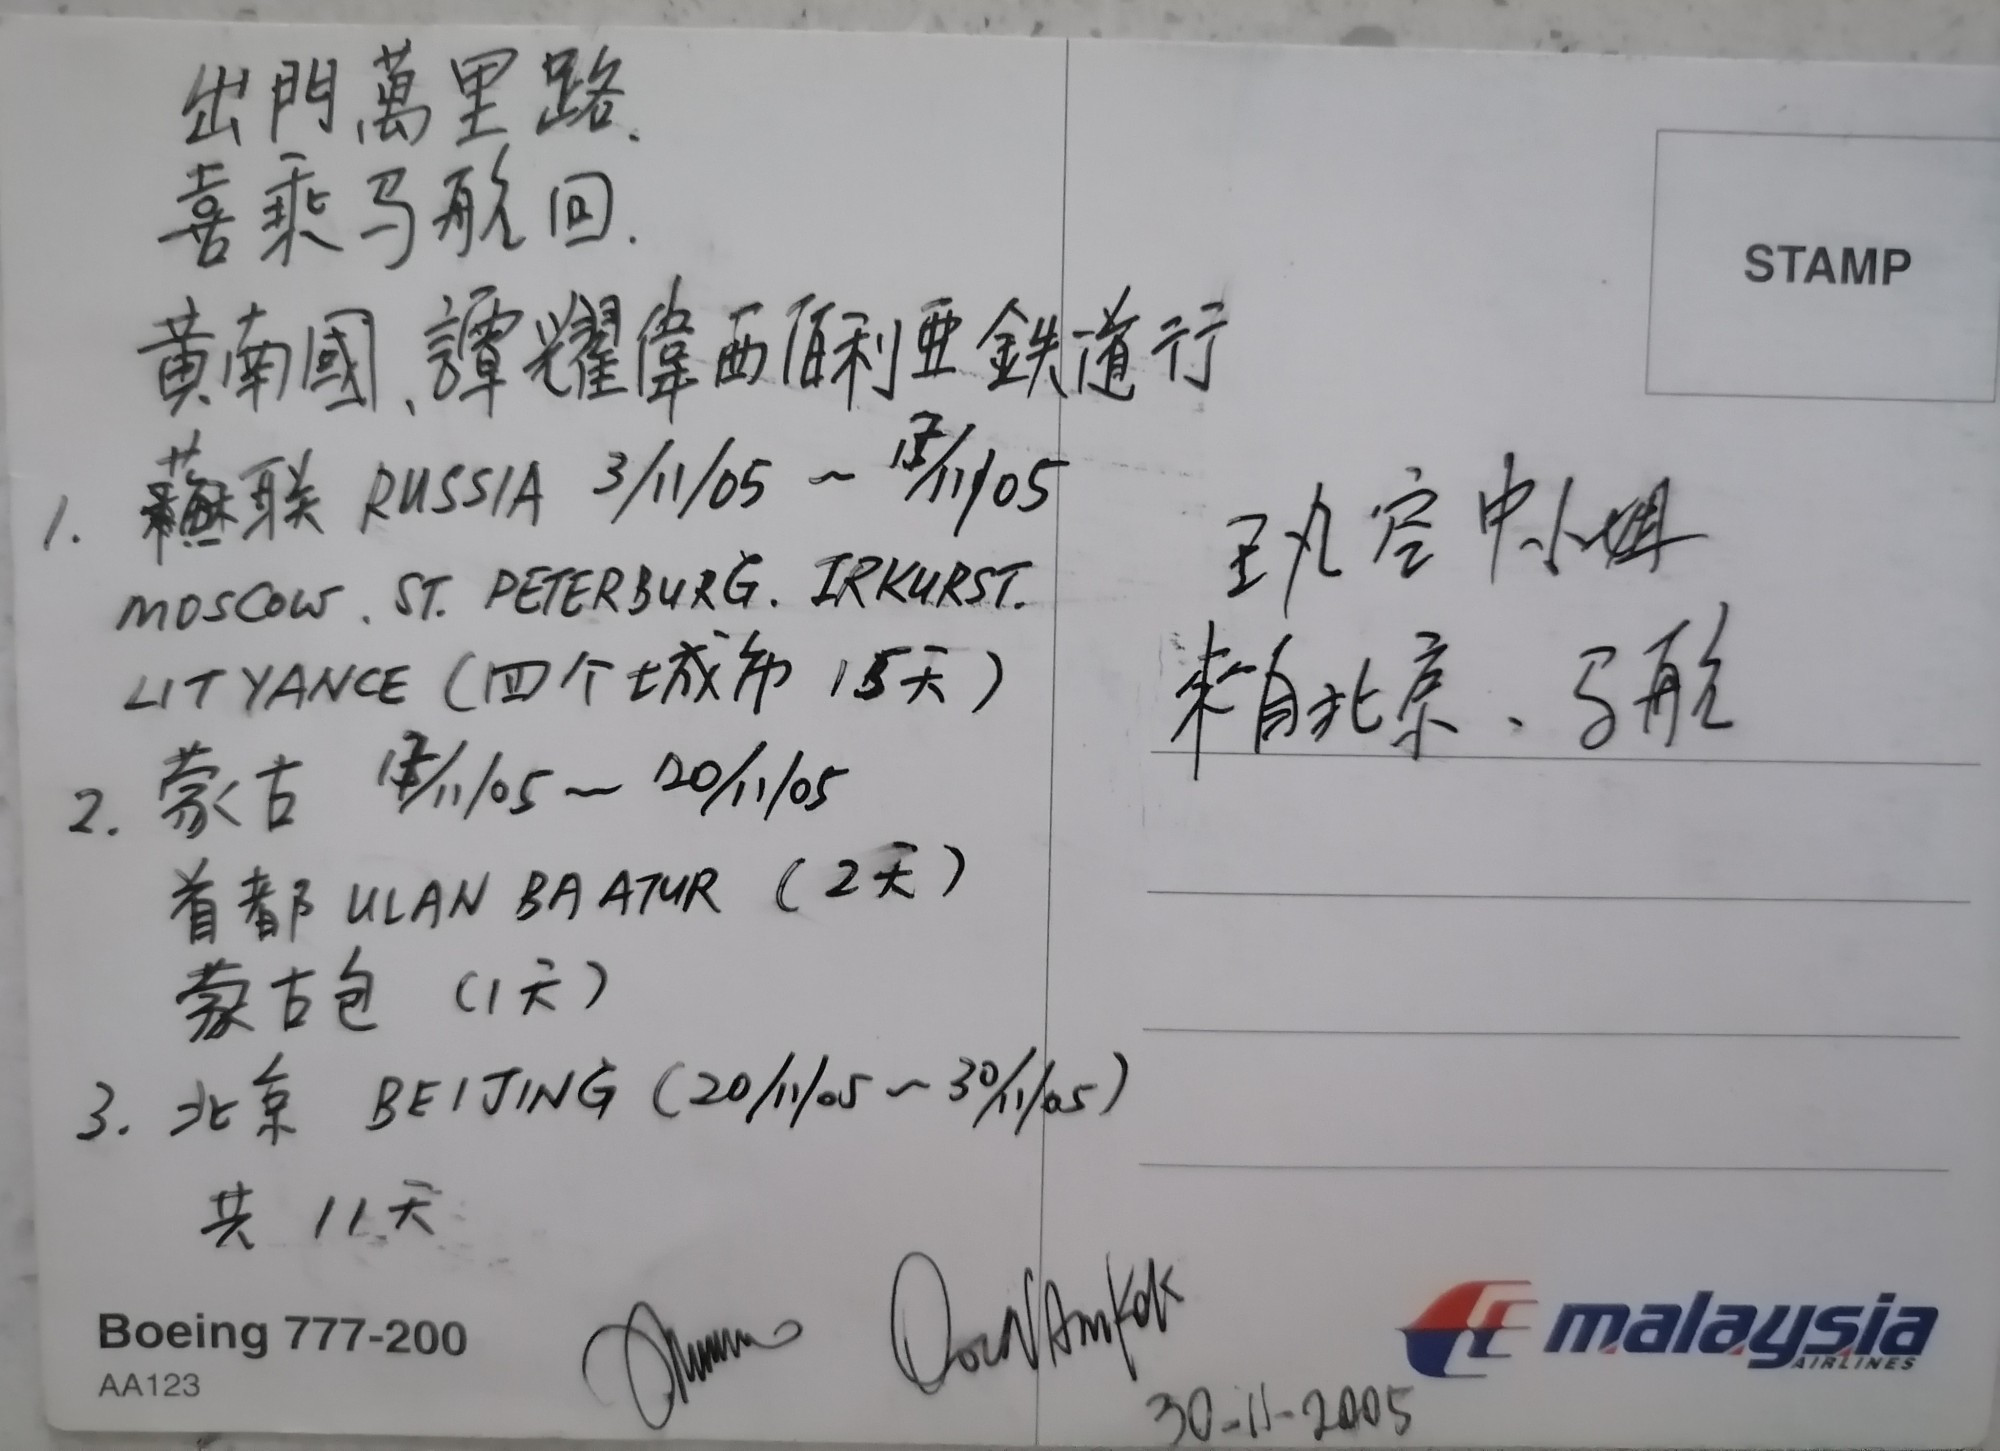 出門萬里路.
喜乘马航回.
黄南國、譚耀偉西伯利亜鉄道行
1. 蘇联 RUSSIA 3/11/05 ~ 17/11/05
MOSCOW. ST. PETERBURG. IRKURST.
LITYANCE (四个城市 15天)
2. 蒙古 17/11/05 ~ 20/11/05
首都 ULAN BAATUR (2天)
蒙古包 (1天)
3. 北京 BEIJING (20/11/05 ~ 30/11/05)
共 11天
Boeing 777-200
AA123
30-11-2005
STAMP
空中小姐
来自北京、马航
malaysia
AIRLINES